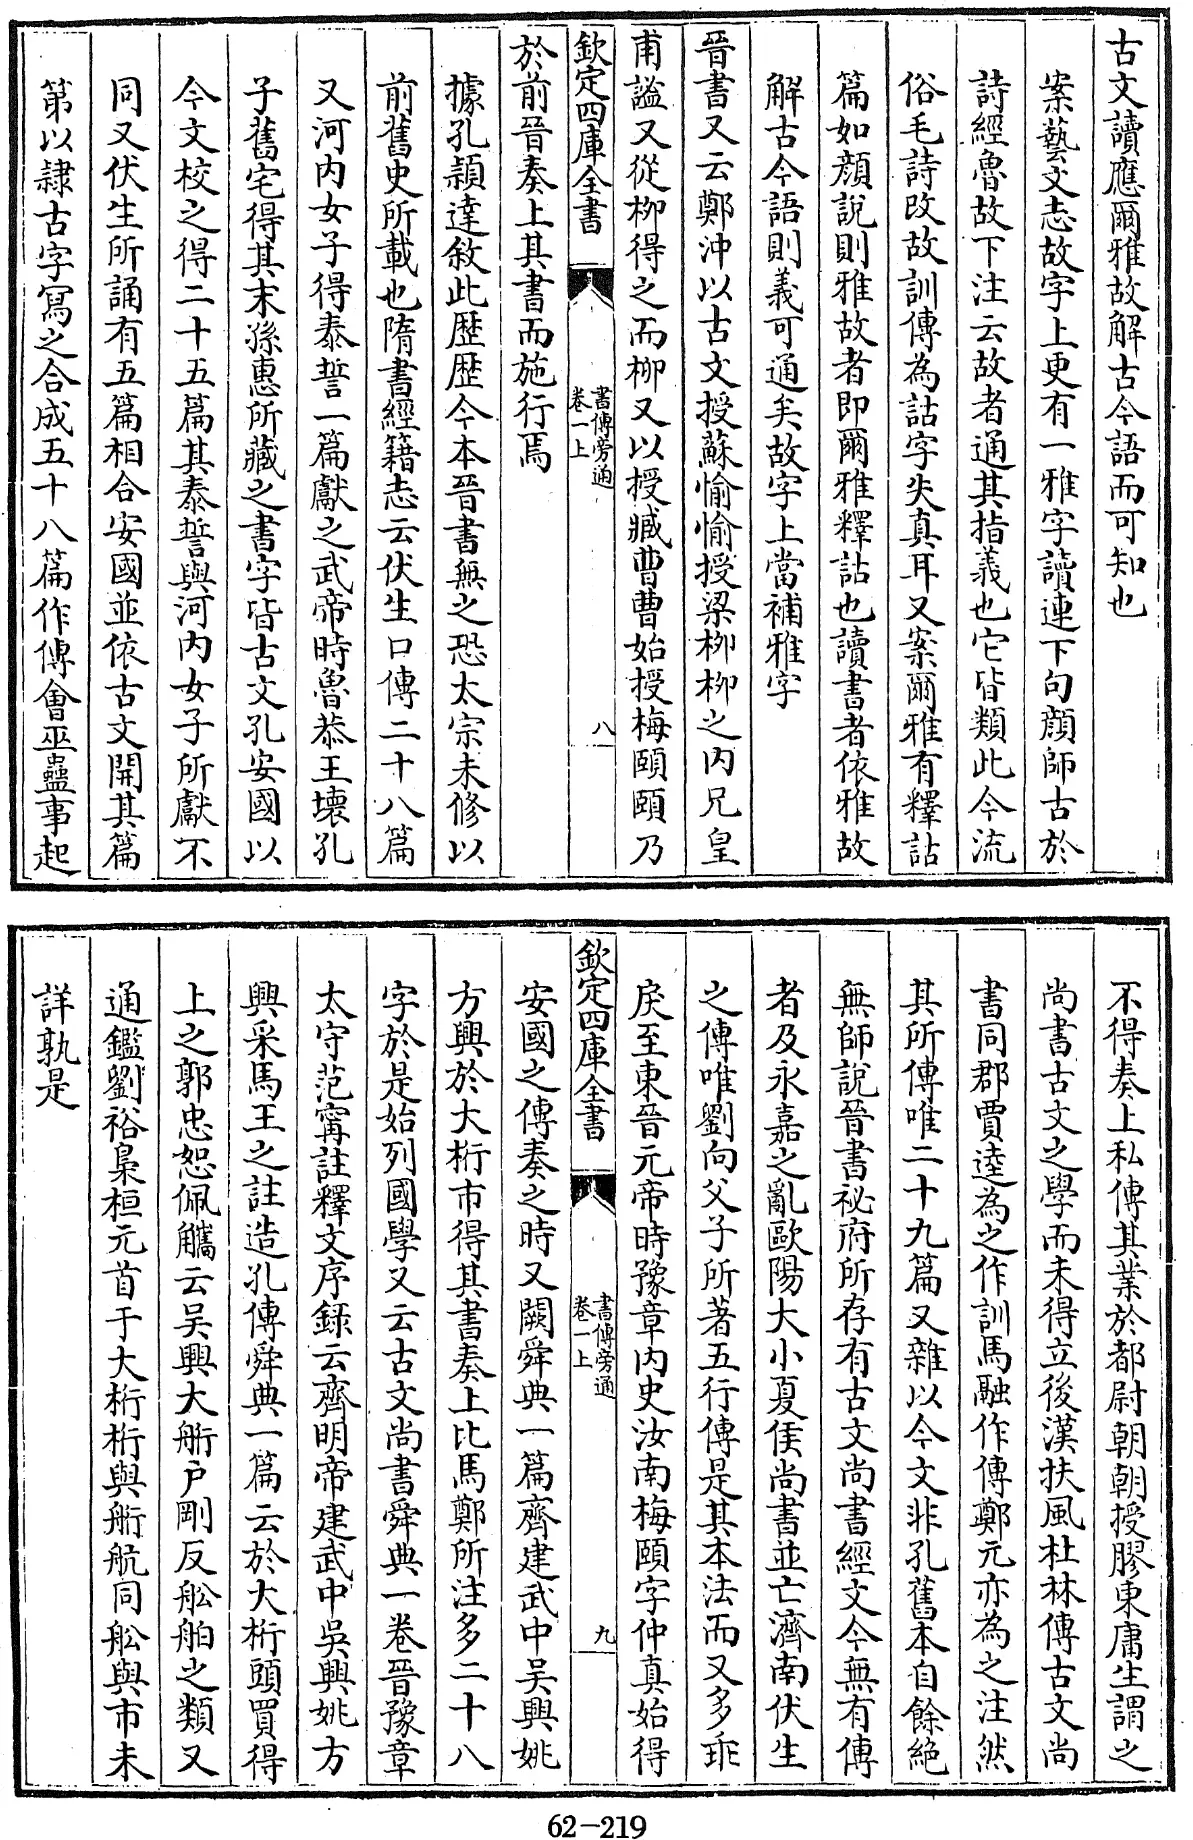 古文讀應爾雅故解古今語而可知也
案藝文志故字上更有一雅字讀連下句顔師古於
詩經魯故下注云故者通其指義也它皆類此今流
俗毛詩改故訓傳為詁字失真耳又案爾雅有釋詁
篇如顔說則雅故者即爾雅釋詁也讀書者依雅故
解古今語則義可通矣故字上當補雅字
晉書又云鄭沖以古文授蘇愉愉授梁栁栁之内兄皇
甫謐又從栁得之而栁又以授臧曹曹始授梅頤頤乃
欽定四庫全書
書傳旁通
卷一上
八
於前晉奏上其書而施行焉
據孔頴達敘此歴歴今本晉書無之恐太宗未修以
前舊史所載也隋書經籍志云伏生口傳二十八篇
又河内女子得泰誓一篇獻之武帝時魯恭王壊孔
子舊宅得其末孫惠所藏之書字皆古文孔安國以
今文校之得二十五篇其泰誓與河内女子所獻不
同又伏生所誦有五篇相合安國並依古文開其篇
第以隷古字寫之合成五十八篇作傳會巫蠱事起
不得奏上私傳其業於都尉朝朝授膠東庸生謂之
尚書古文之學而未得立後漢扶風杜林傳古文尚
書同郡賈逵為之作訓馬融作傳鄭元亦為之注然
其所傳唯二十九篇又雜以今文非孔舊本自餘絶
無師說晉書祕府所存有古文尚書經文今無有傳
者及永嘉之亂歐陽大小夏侯尚書並亡濟南伏生
之傳唯劉向父子所著五行傳是其本法而又多乖
戾至東晉元帝時豫章内史汝南梅頤字仲真始得
欽定四庫全書
書傳旁通
卷一上
九
安國之傳奏之時又闕舜典一篇齊建武中吴興姚
方興於大桁市得其書奏上比馬鄭所注多二十八
字於是始列國學又云古文尚書舜典一卷晉豫章
太守范甯註釋文序録云齊明帝建武中吳興姚方
興采馬王之註造孔傳舜典一篇云於大桁頭買得
上之郭忠恕佩觿云吴興大䑪户剛反舩舶之類又
通鑑劉裕梟桓元首于大桁桁與䑪航同舩與市未
詳孰是
62-219